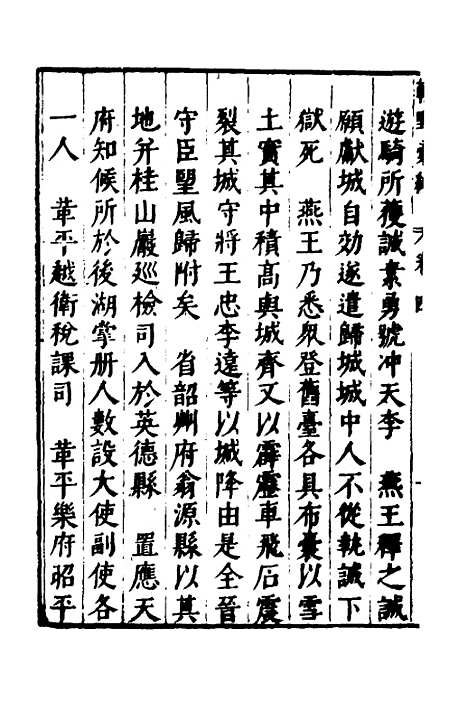 遊騎所獲誠素勇號冲天李　燕王釋之誠
願獻城自効遂遣歸城城中人不從執誠下
獄死　燕王乃悉衆登舊臺各具布囊以雪
土實其中積高與城齊又以霹靂車飛石震
裂其城守將王忠李遠等以城降由是全晉
守臣望風歸附矣　省韶州府翁源縣以其
地并桂山巖巡檢司入於英德縣　置應天
府知候所於後湖掌册人數設大使副使各
一人　革平越衛稅課司　革平樂府昭平